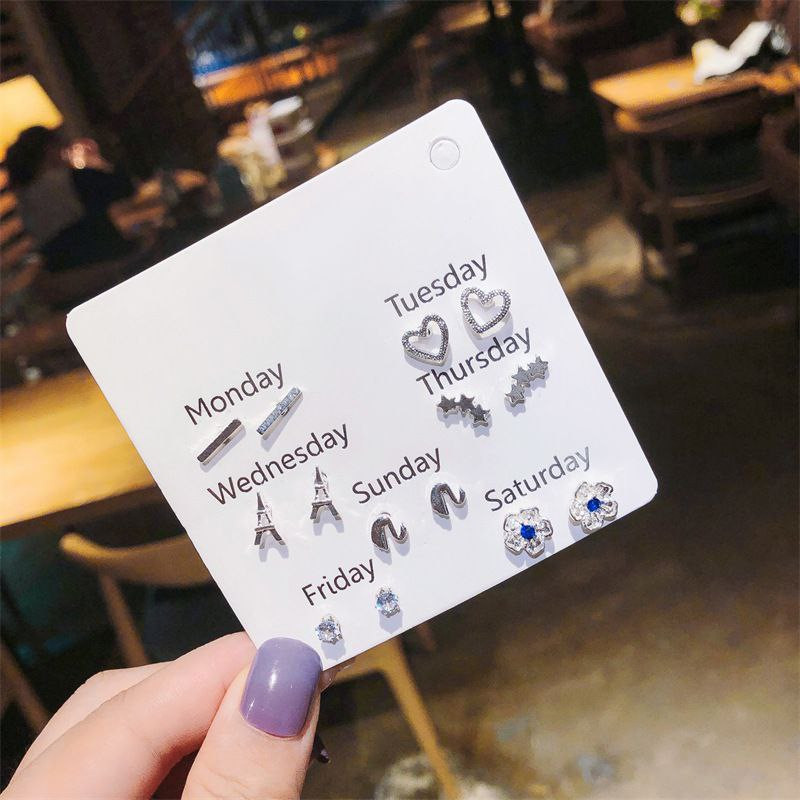 Monday
Tuesday
Wednesday
Thursday
Friday
Sunday
Saturday